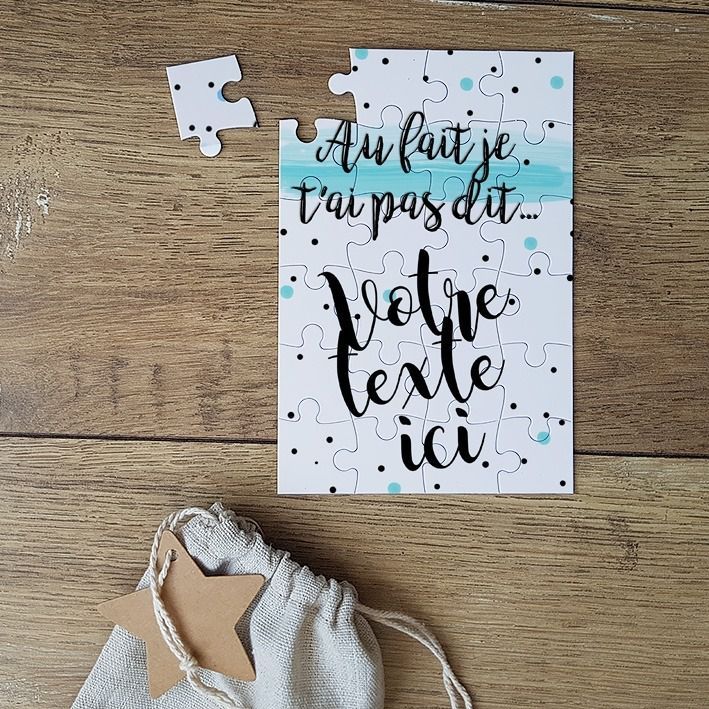 Au fait je
t'ai pas dit...
Votre
texte
ici